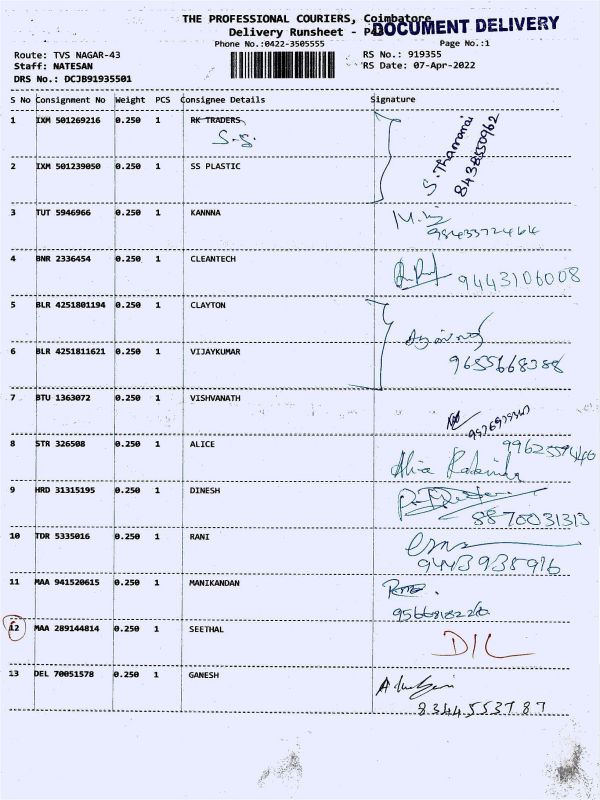 THE PROFESSIONAL COURIERS, Coimbatore
DOCUMENT DELIVERY
Delivery Runsheet -
Phone No.:0422-3505555 Page No.:1
Route: TVS NAGAR-43 RS No.: 919355
Staff: NATESAN RS Date: 07-Apr-2022
DRS No.: DCJB91935501
S No Consignment No Weight PCS Consignee Details Signature
1 IXM 501269216 0.250 1 RK TRADERS
S.S. S. 8438550962
2 IXM 501239050 0.250 1 SS PLASTIC
3 TUT 5946966 0.250 1 KANNNA
9843372464
4 BNR 2336454 0.250 1 CLEANTECH
9443106008
5 BLR 4251801194 0.250 1 CLAYTON
6 BLR 4251811621 0.250 1 VIJAYKUMAR
9655668388
7 BTU 1363072 0.250 1 VISHVANATH
8 STR 326508 0.250 1 ALICE
9 HRD 31315195 0.250 1 DINESH
8870031313
10 TDR 5335016 0.250 1 RANI
9443938916
11 MAA 941520615 0.250 1 MANIKANDAN
12 MAA 289144814 0.250 1 SEETHAL D/L
13 DEL 70051578 0.250 1 GANESH
8344553787